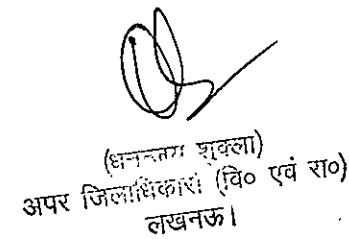 (धनन्जय शुक्ला)
अपर जिलाधिकारी (वि० एवं रा०)
लखनऊ।